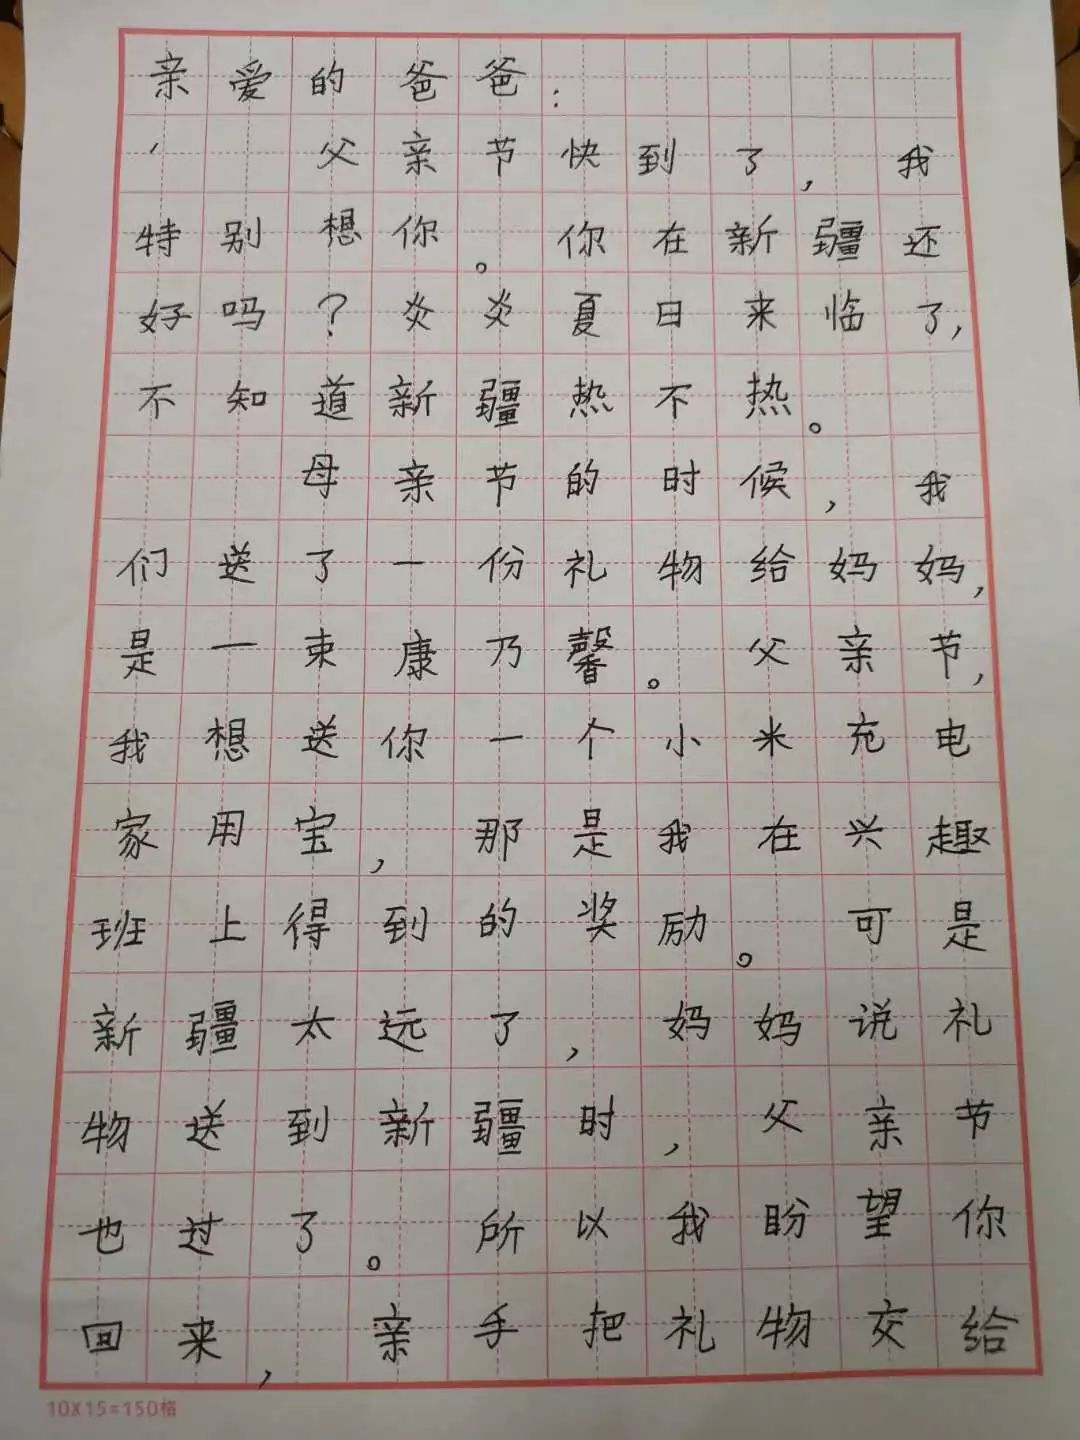 亲爱的爸爸:
父亲节快到了,我
特别想你。你在新疆还
好吗?炎炎夏日来临了,
不知道新疆热不热。
母亲节的时候,我
们送了一份礼物给妈妈,
是一束康乃馨。父亲节,
我想送你一个小米充电
家用宝,那是我在兴趣
班上得到的奖励。可是
新疆太远了,妈妈说礼
物送到新疆时,父亲节
也过了。所以我盼望你
回来,亲手把礼物交给
10X15=150格